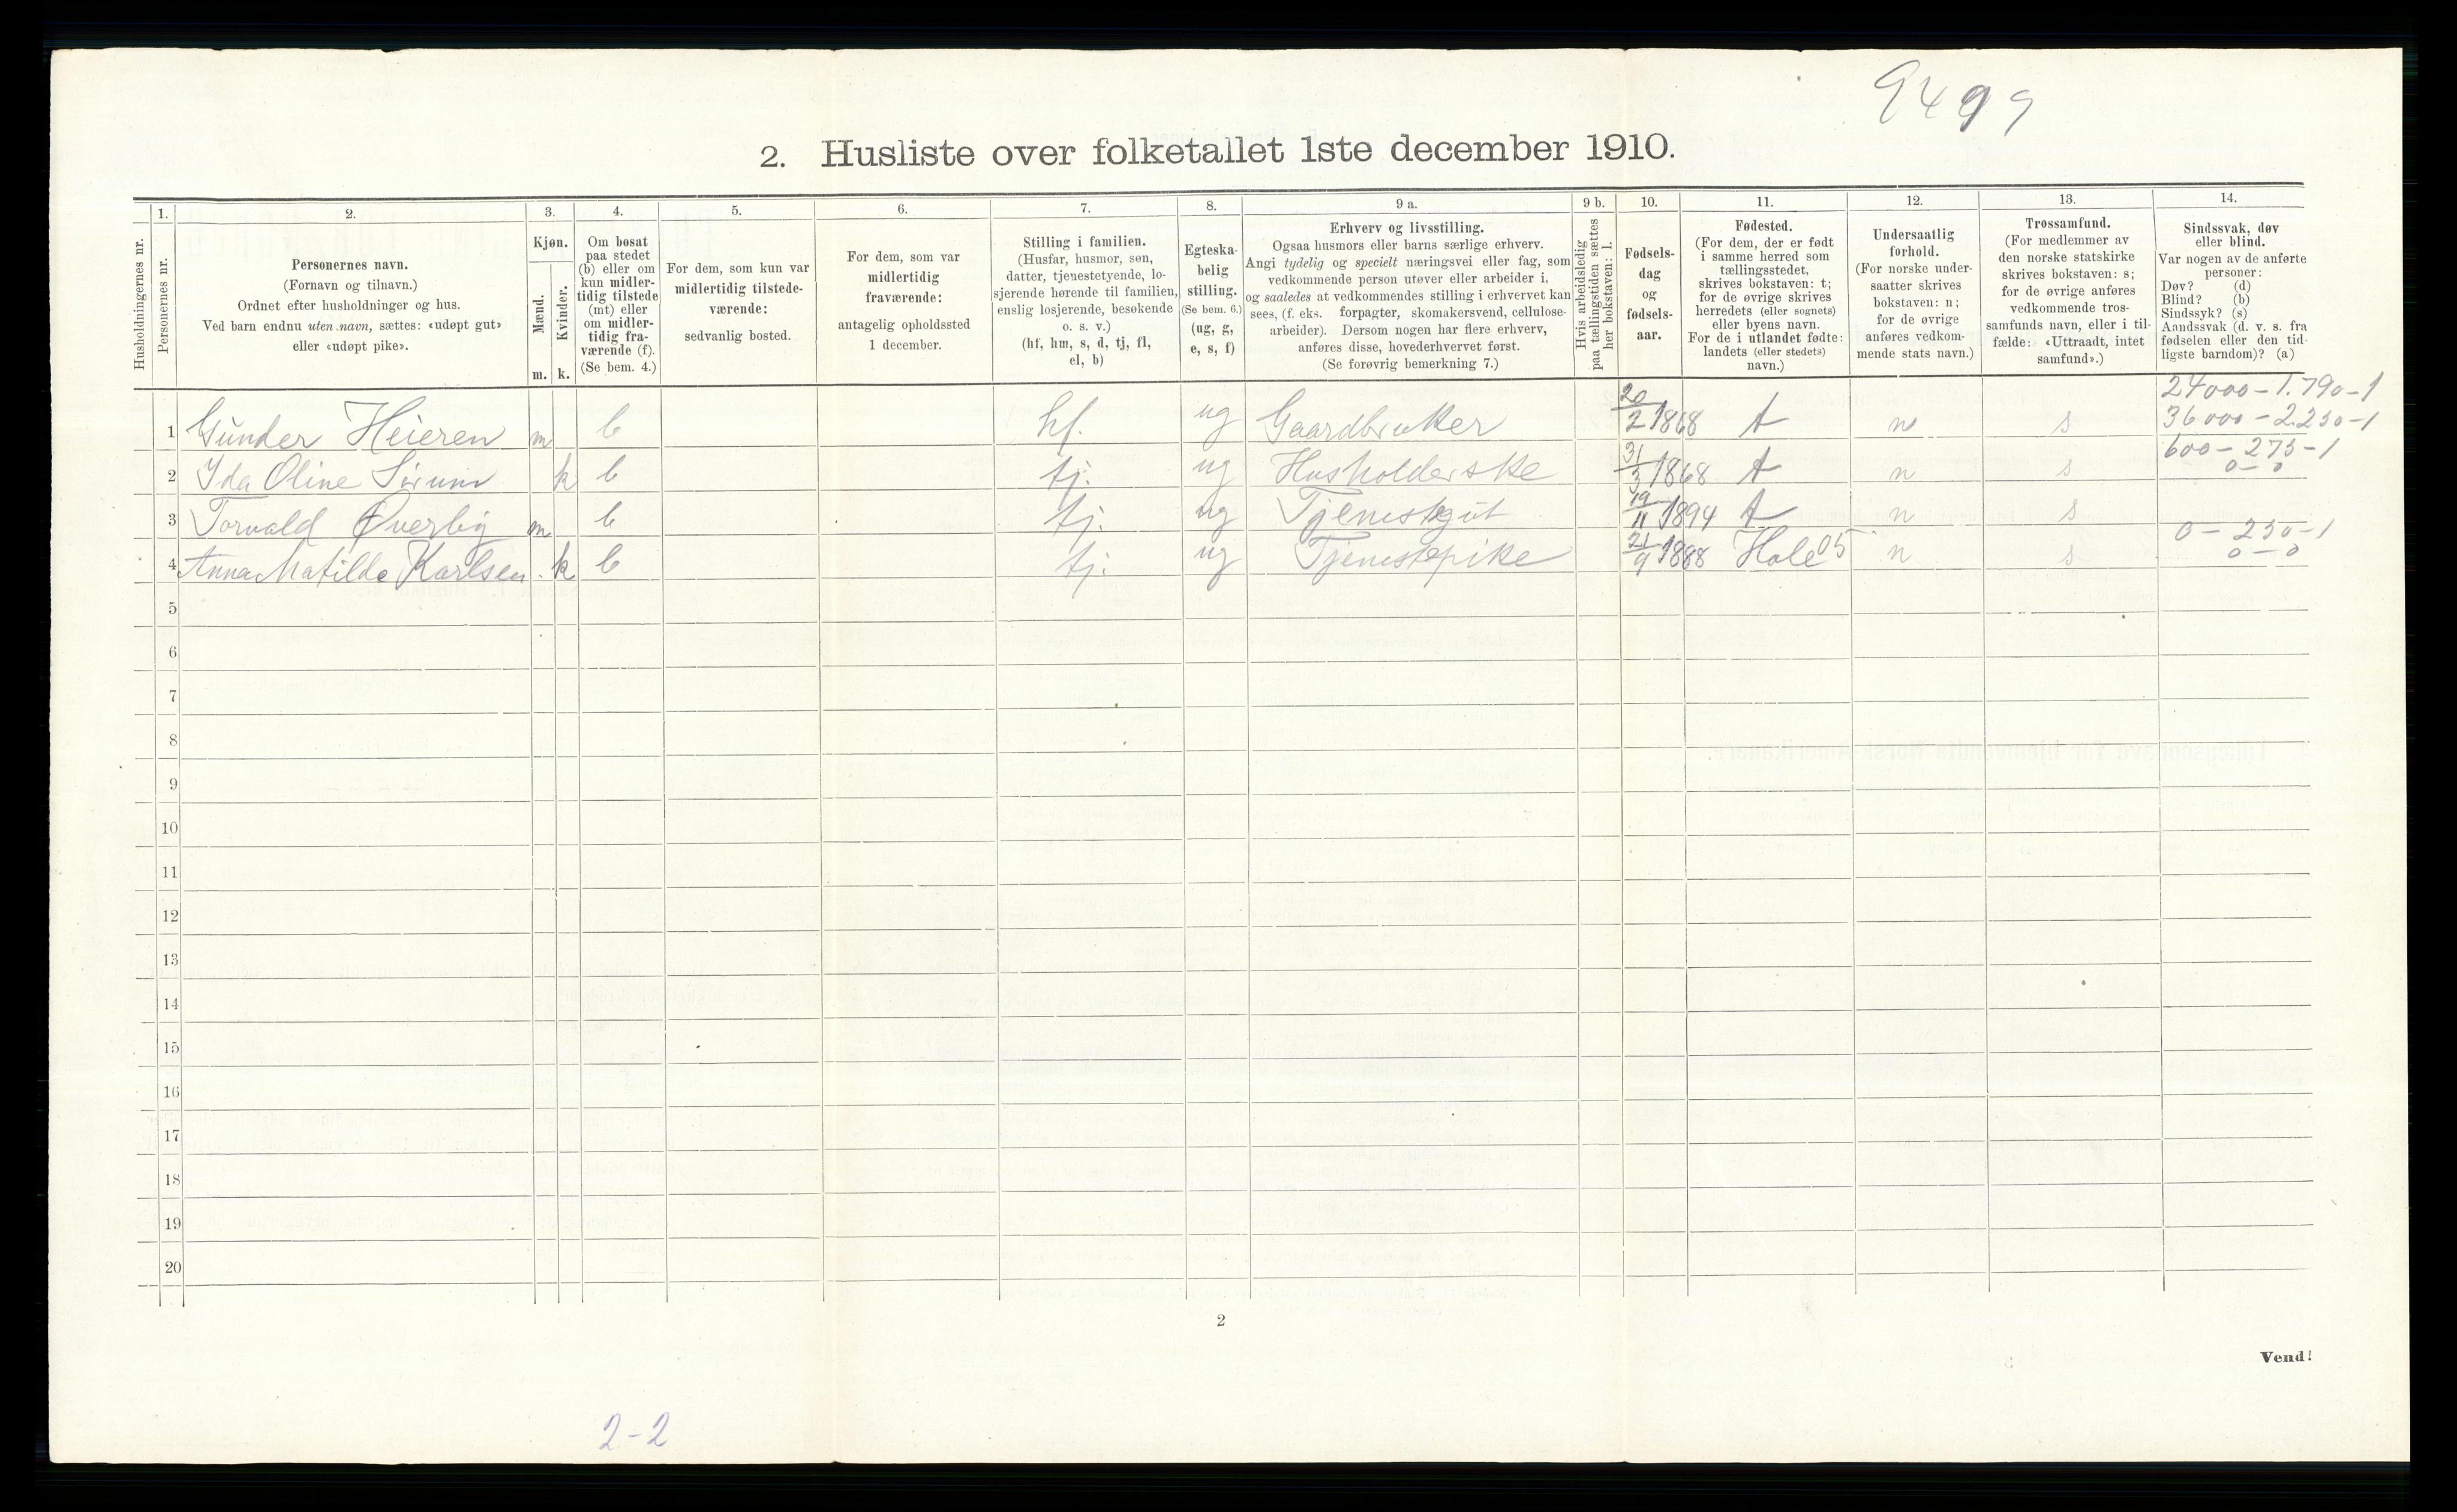 9499
2. Husliste over folketallet 1ste december 1910.
Husholdningernes nr.
1.
Personernes nr.
2.
Personernes navn.
(Fornavn og tilnavn.)
Ordnet efter husholdninger og hus.
Ved barn endnu uten navn, sættes: «udøpt gut»
eller «udøpt pike».
3.
Kjøn.
Mænd.
Kvinder.
m. k.
4.
Om bosat
paa stedet
(b) eller om
kun midler-
tidig tilstede
(mt) eller
om midler-
tidig fra-
værende (f).
(Se bem. 4.)
5.
For dem, som kun var
midlertidig tilstede-
værende:
sedvanlig bosted.
6.
For dem, som var
midlertidig
fraværende:
antagelig opholdssted
1 december.
7.
Stilling i familien.
(Husfar, husmor, søn,
datter, tjenestetyende, lo-
sjerende hørende til familien,
enslig losjerende, besøkende
o. s. v.)
(hf, hm, s, d, tj, fl,
el, b)
8.
Egteska-
belig
stilling.
(Se bem. 6.)
(ug, g,
e, s, f)
9 a.
Erhverv og livsstilling.
Ogsaa husmors eller barns særlige erhverv.
Angi tydelig og specielt næringsvei eller fag, som
vedkommende person utøver eller arbeider i,
og saaledes at vedkommendes stilling i erhvervet kan
sees, (f. eks. forpagter, skomakersvend, cellulose-
arbeider). Dersom nogen har flere erhverv,
anføres disse, hovederhvervet først.
(Se forøvrig bemerkning 7.)
9 b.
Hvis arbeidsledig
paa tællingstiden sættes
her bokstaven: l.
10.
Fødsels-
dag
og
fødsels-
aar.
11.
Fødested.
(For dem, der er født
i samme herred som
tællingsstedet,
skrives bokstaven: t;
for de øvrige skrives
herredets (eller sognets)
eller byens navn.
For de i utlandet fødte:
landets (eller stedets)
navn.)
12.
Undersaatlig
forhold.
(For norske under-
saatter skrives
bokstaven: n;
for de øvrige
anføres vedkom-
mende stats navn.)
13.
Trossamfund.
(For medlemmer av
den norske statskirke
skrives bokstaven: s;
for de øvrige anføres
vedkommende tros-
samfunds navn, eller i til-
fælde: «Uttraadt, intet
samfund».)
14.
Sindssvak, døv
eller blind.
Var nogen av de anførte
personer:
Døv? (d)
Blind? (b)
Sindssyk? (s)
Aandssvak (d. v. s. fra
fødselen eller den tid-
ligste barndom)? (a)
24000 – 1.790 – 1
1 Gunder Heieren m b hf. ug Gaardbruker 20/2 1868 t n s 36000 – 2.250 – 1
600 – 275 – 1
2 Ida Oline Sørum k b tj. ug Husholderske 31/3 1868 t n s 0 – 0
3 Torvald Øverby m b tj. ug Tjenestegut 19/11 1894 t n s
0 – 250 – 1
4 Anna Matilde Karlsen k b tj. ug Tjenestepike 21/9 1888 Hole 05 n s 0 – 0
5
6
7
8
9
10
11
12
13
14
15
16
17
18
19
20
2
Vend!
2-2